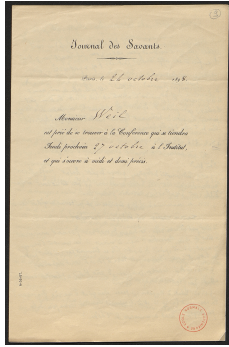 Journal des Savants.
Paris, le 24 octobre 189
Monsieur Weil
est prié de se trouver à la Conférence qui se tiendra
Jeudi prochain 27 octobre à l'Institut,
et qui s'ouvre à midi et demi précis.